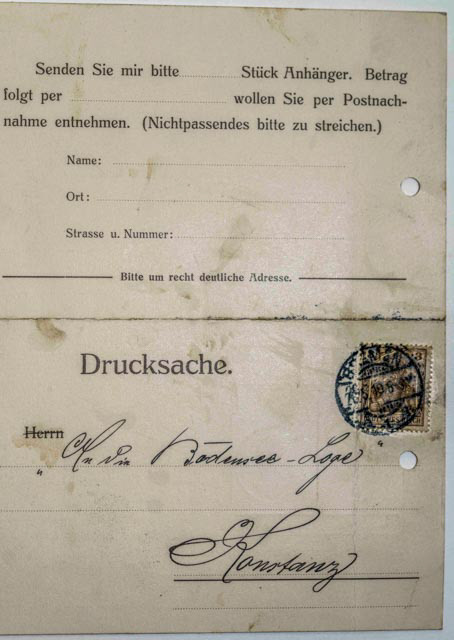 Senden Sie mir bitte Stück Anhänger. Betrag
folgt per wollen Sie per Postnach-
nahme entnehmen. (Nichtpassendes bitte zu streichen.)
Name:
Ort:
Strasse u. Nummer:
Bitte um recht deutliche Adresse.
Drucksache.
BREMEN
3
Herrn
„ An die Bodensee-Loge "
Konstanz